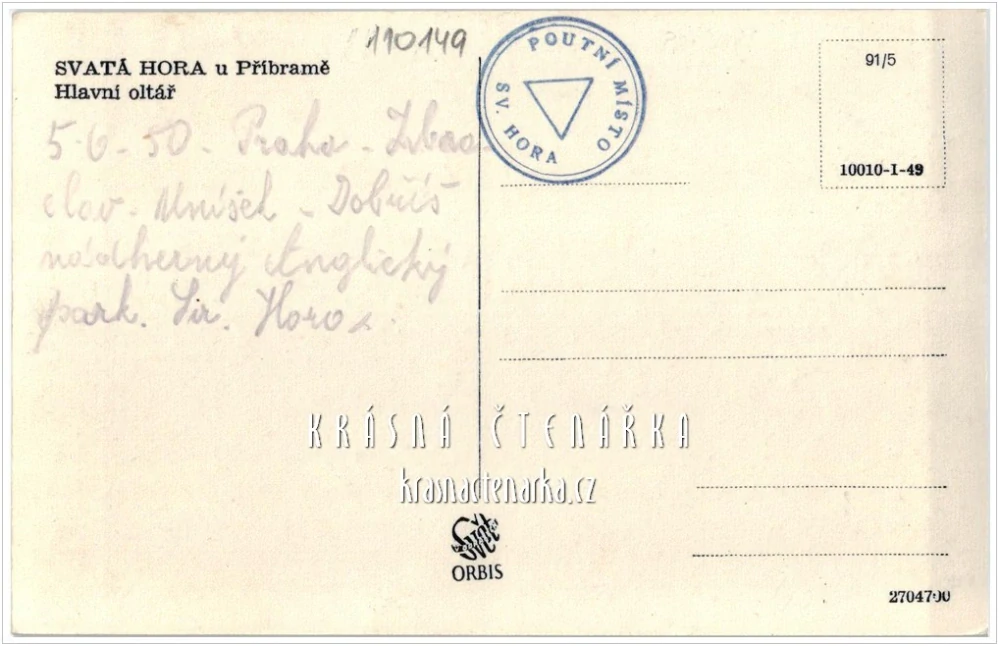 110149
SVATÁ HORA u Příbramě
Hlavní oltář
5.6.50. Praha - Zbra
slav. Mníšek - Dobříš
nádherný Anglický
park. Sv. Hora.
POUTNÍ MÍSTO
SV. HORA
91/5
10010-I-49
KRÁSNÁ ČTENÁŘKA
krasnactenarka.cz
Svět
ORBIS
2704700